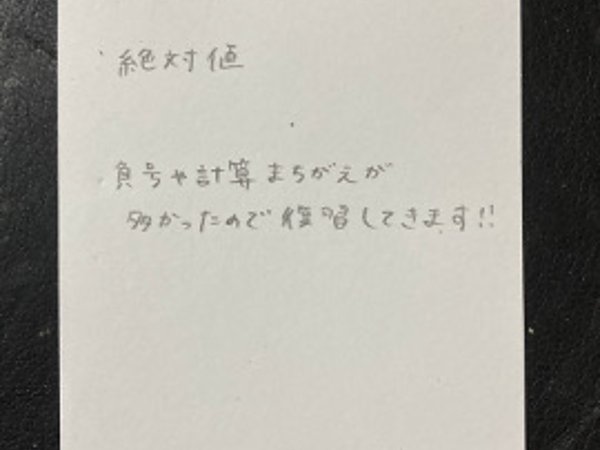 ・絶対値
・負号や計算まちがえが
多かったので復習してきます!!